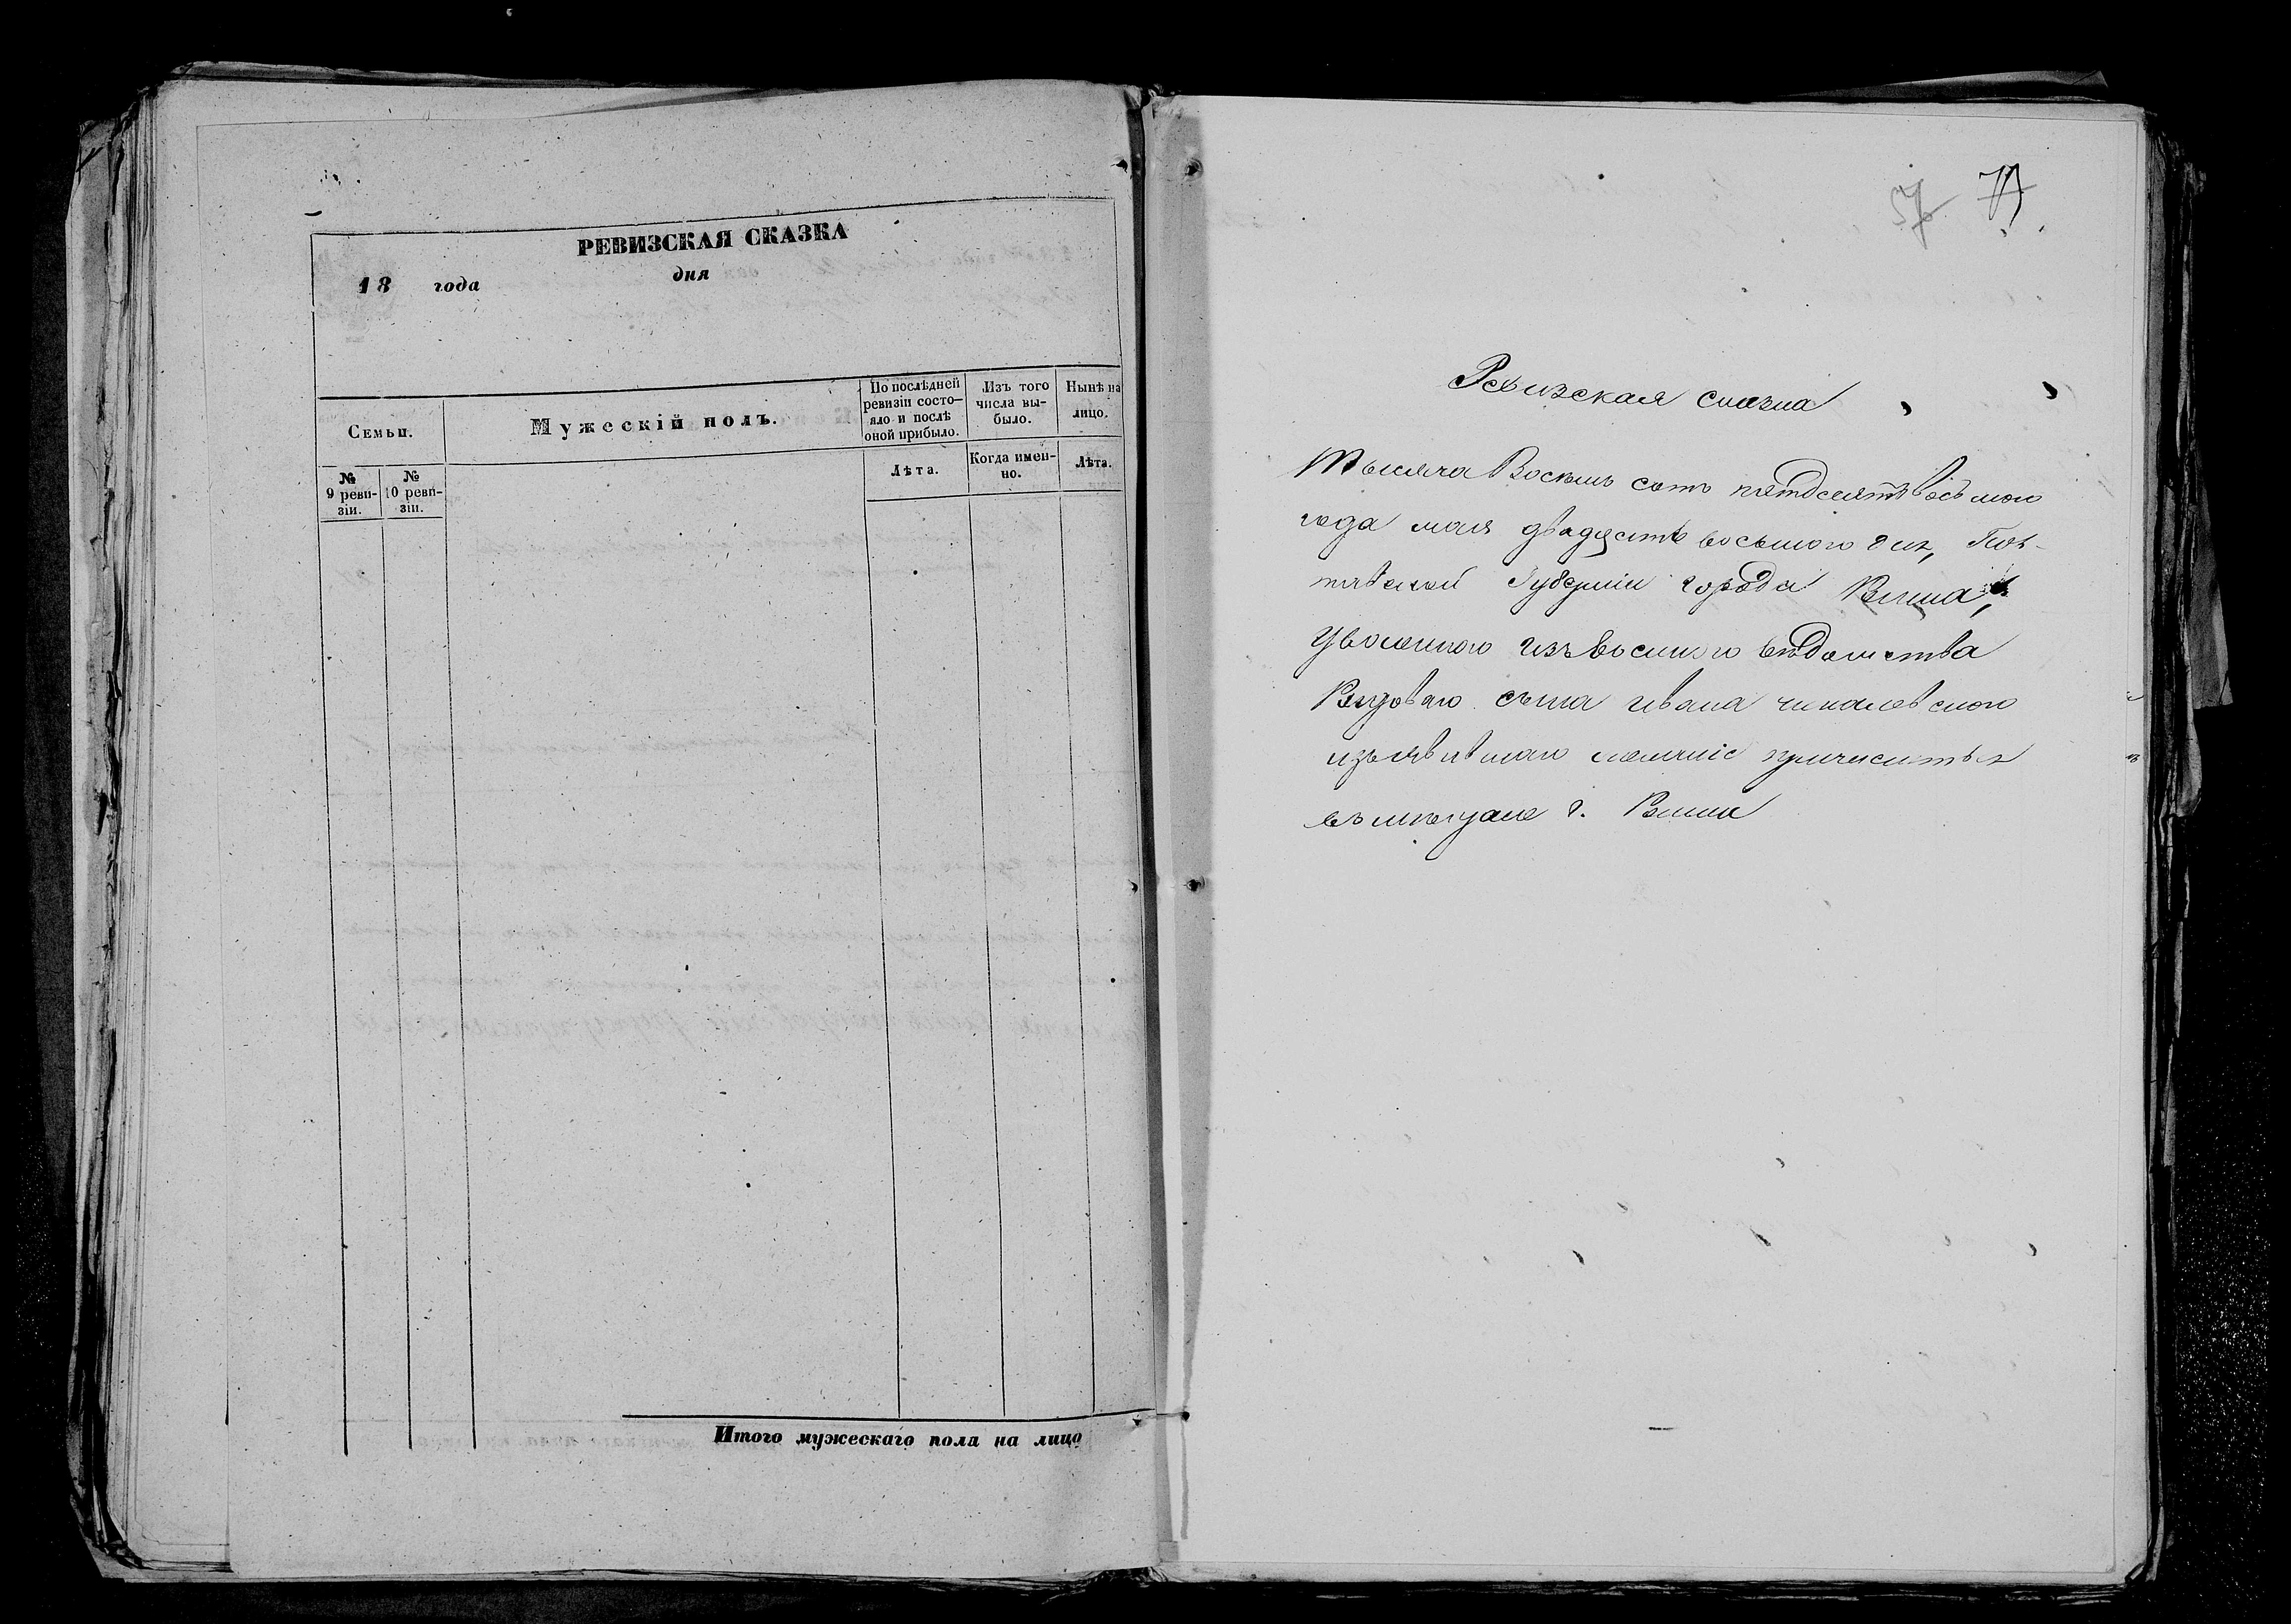 РЕВИЗСКАЯ СКАЗКА
18 года дня
Семьи.
Мужескій полъ.
По послѣдней ревизіи состо-яло и послѣ оной прибыло.
Изъ того числа вы-было.
Нынѣ на лицо.
№ 9 реви-зіи.
№ 10 реви-зіи.
Лѣта.
Когда имен-но.
Лѣта.
Итого мужескаго пола на лицо
57
Ревизская сказка
Тысяча Восемь сотъ пятдесятъ восьмого
года мая двадцать восьмого дня,
Губерніи города
Уволенного изъ военного вѣдомства
сына Ивана
изъявившаго желаніе причислится
въ мещане г.